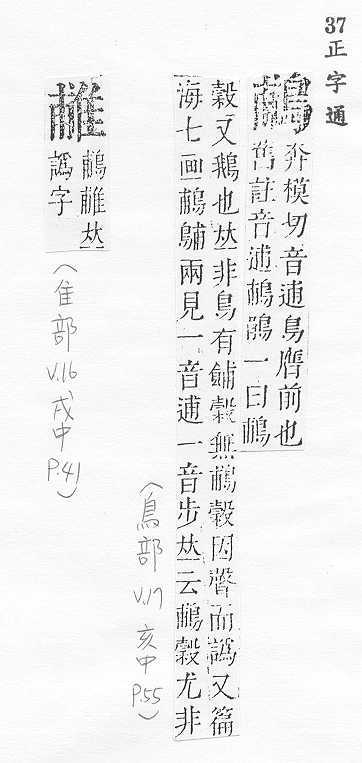 37正字通
鵏
奔模切音逋鳥膺前也
舊註音逋鵏一曰鵏
穀又鵝也𠀤非鳥有鋪穀無鵏穀因聲而譌又篇
海七画鵏兩見一音逋一音步𠀤云鵏穀尤非
(鳥部 V.17 亥中 P.55)
鵏𠀤
譌字
(隹部 V.16 戌中 P.41)